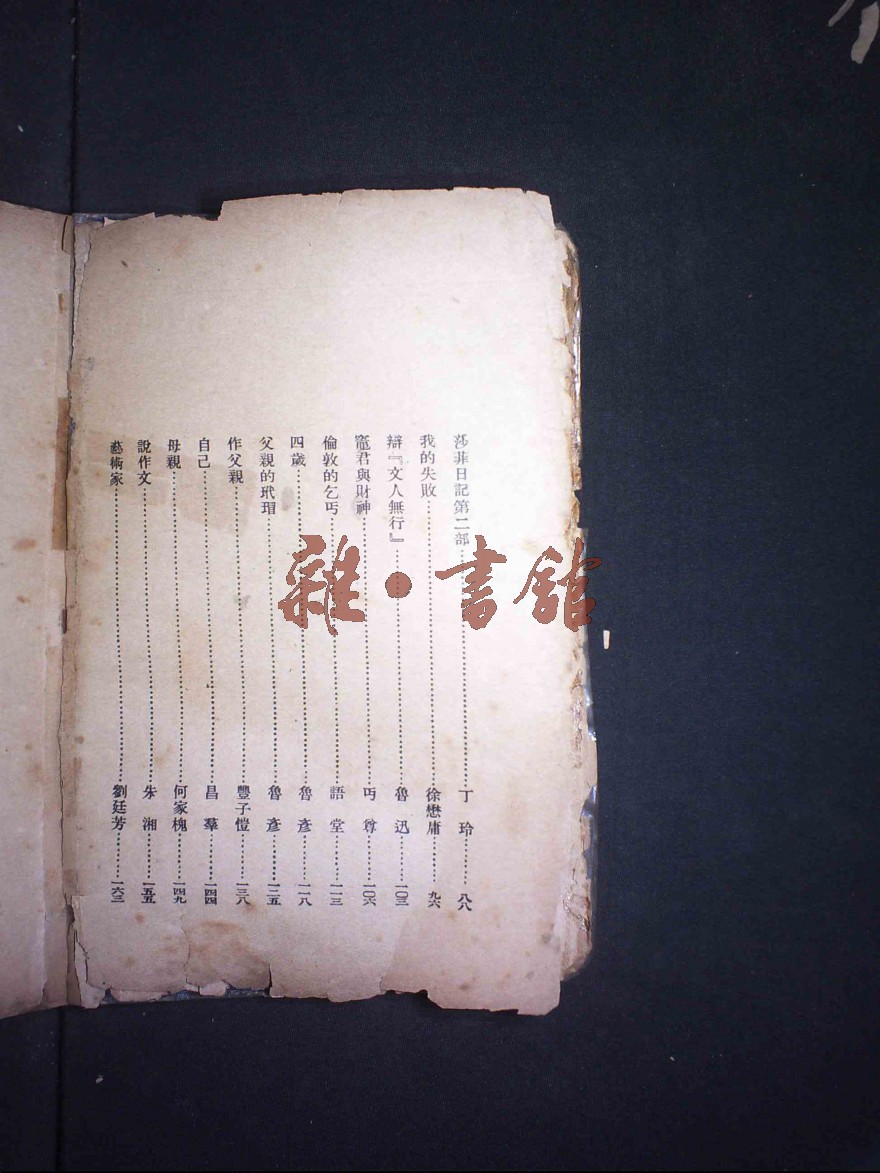 莎菲日記第二部……丁玲……八八
我的失敗……徐懋庸……九六
辯『文人無行』……魯迅……一〇三
竈君與財神……丏尊……一〇六
倫敦的乞丐……語堂……一一三
四歲……魯彥……一一八
父親的玳瑁……魯彥……一二五
作父親……豐子愷……一三八
自己……昌羣……一四四
母親……何家槐……一四九
說作文……朱湘……一五五
藝術家……劉廷芳……一六三
雜·書館